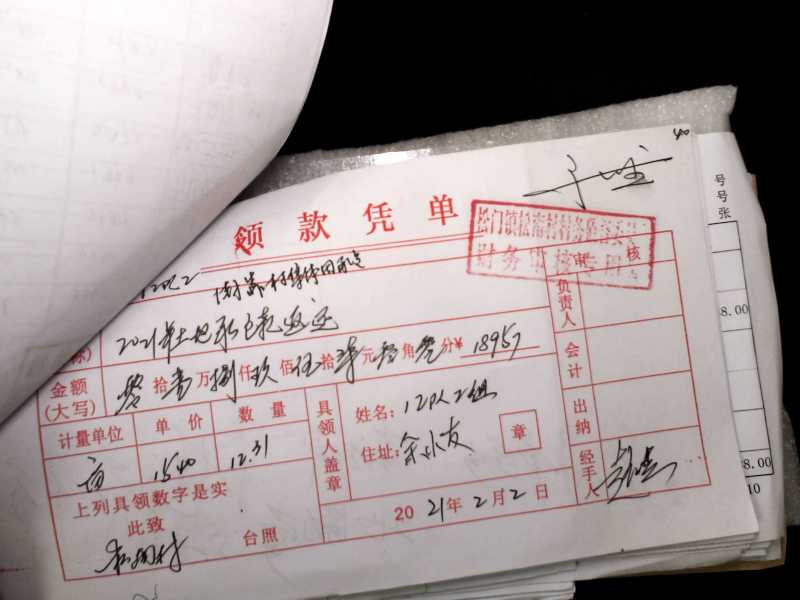 40
领款凭单
松门镇松南村村务监督委员会
财务审核专用
审核
2021年土地承包款返还
金额(大写) 零拾壹万捌仟玖佰伍拾柒元零角零分¥ 18957
计量单位 单价 数量
亩 1540 12.31
具领人盖章
姓名: 12队2组
住址: 余小友
章
20 21年 2月 2日
上列具领数字是实
此致
松南村 台照
负责人
会计
出纳
经手人
号
号
张
8.00
8.00
10